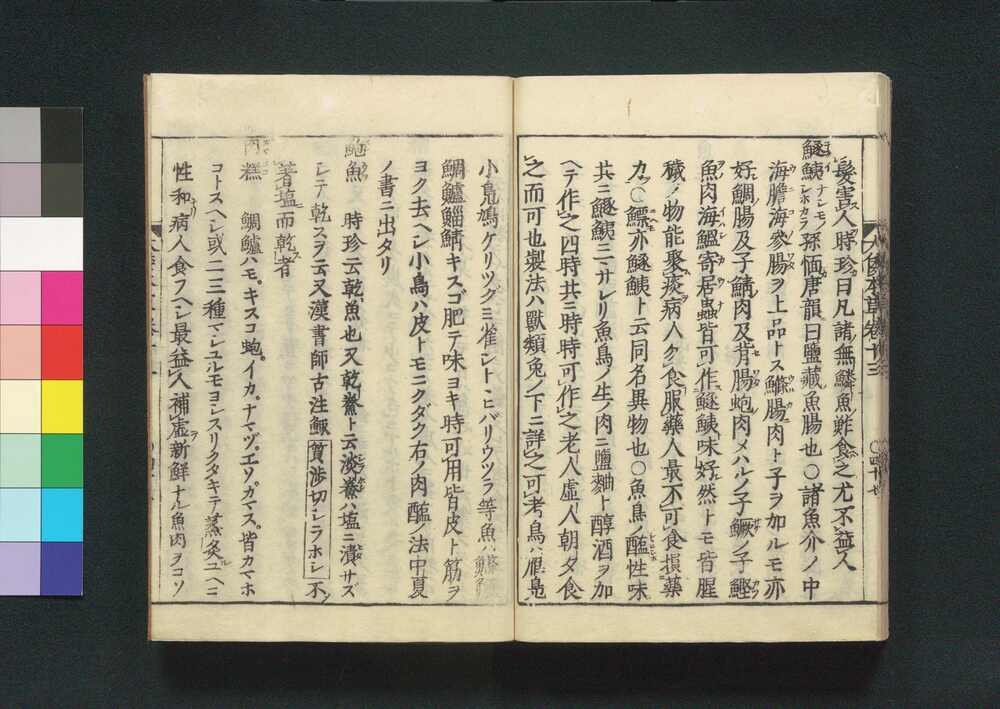 髮害人時珍曰凡諸無鱗魚鮓食之尤不益人
鱁鮧 ナシモノ シホカラ 孫愐唐韻曰鹽藏魚腸也〇諸魚介ノ中
海膽海參腸ヲ上品トス鰷腸肉ト子ヲ加ルモ亦
好鯛腸及子鯖肉及背腸蚫肉メハルノ子鱖ノ子鰹
魚肉海鰮寄居蟲皆可作鱁鮧味好然トモ皆腥
穢ノ物能聚痰病人不可食服藥人最不可食損藥
力〇鰾亦鱁鮧ト云同名異物也〇魚鳥ノ醢性味
共ニ鱁鮧ニマサレリ魚鳥ノ生ノ肉ニ鹽麯ト醇酒ヲ加
ヘテ作之四時共ニ時時可作之老人虛人朝夕食
之而可也製法ハ獸類兔ノ下ニ詳之可考鳥ハ雁鳧
小鳧鳩ケリツグミ雀シトヽヒバリウツラ等魚ハ
鯛鱸鯔鯖キスゴ肥テ味ヨキ時可用皆皮ト筋ヲ
ヨク去ヘシ小鳥ハ皮トモニクダク右ノ肉醢ノ法中夏
ノ書ニ出タリ
鮑魚 時珍云乾魚也又乾鮝ト云淡鮝ハ塩ニ漬サズ
シテ乾スヲ云又漢書師古注鮿質渉切シラホシ不
著塩而乾者
肉糕 鯛鱸ハモ。キスコ蚫。イカ。ナマヅ。エソ。カマス。皆カマホ
コトスヘシ或二三種マシユルモヨシスリクタキテ蒸炙ユヘニ
性和病人食フヘシ最益人補虛新鮮ナル魚肉ヲコソ